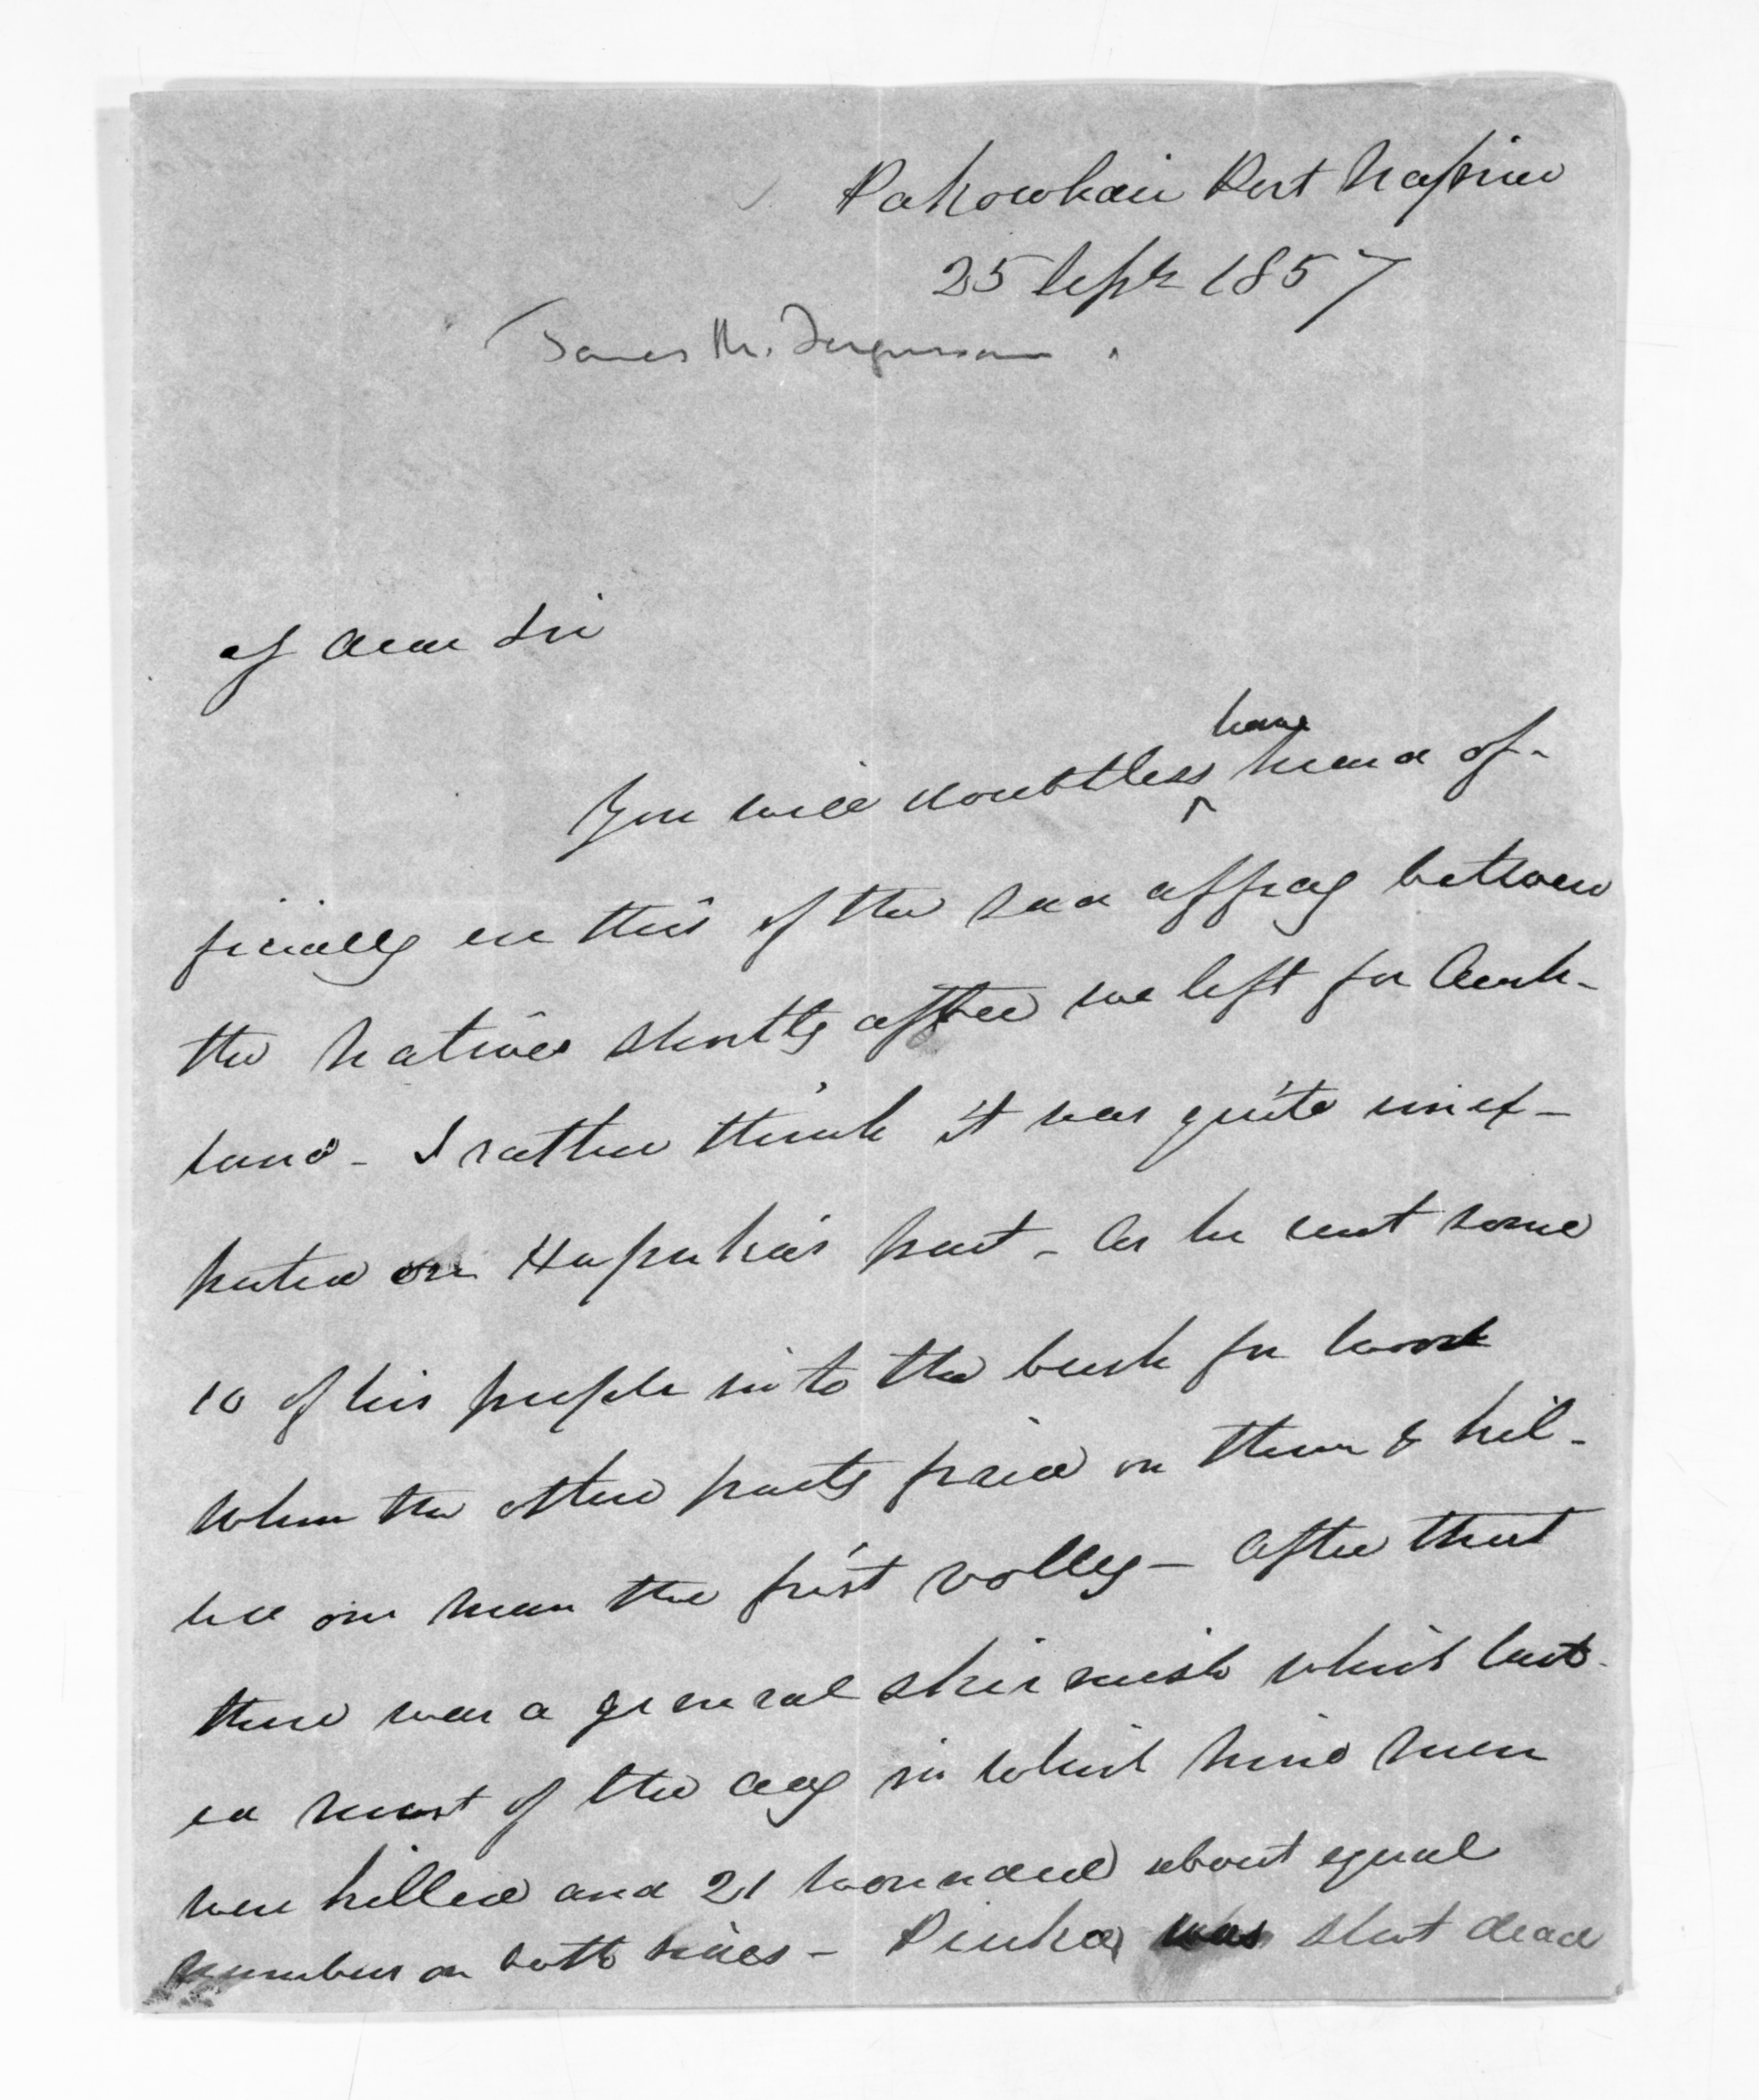 Pakowhai Port Napier
25 Sept 1857
James M. Fergusson.
My dear Sir
You will doubtless have heard of-
ficially ere this of the sad affray between
the Natives shortly after we left for Auck-
land - I rather think it was quite unex-
pected on Hapuka's part - As he sent some
10 of his people into the bush for wood
When the other party fired on them & kil-
led one man the first volley - After that
there was a general skirmish which last-
ed most of the day in which nine men
were killed and 21 wounded about equal
numbers on both sides - was shot dead